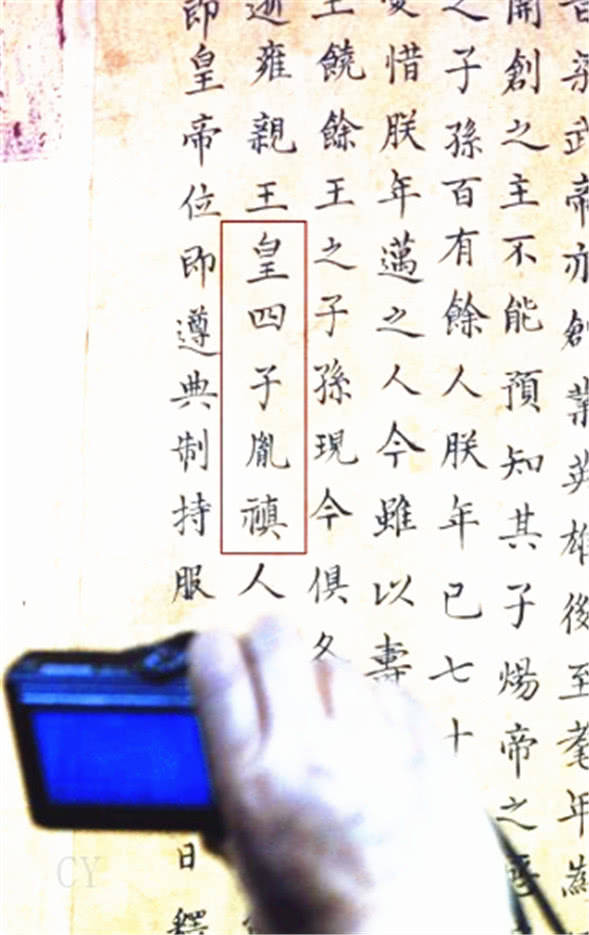 昔梁武帝亦創業英雄後至耄年為
開創之主不能預知其子煬帝之
之子孫百有餘人朕年已七十
惜朕年邁之人今雖以壽
王饒餘王之子孫現今俱
逝雍親王皇四子胤禛人
即皇帝位即遵典制持服
日釋
CY